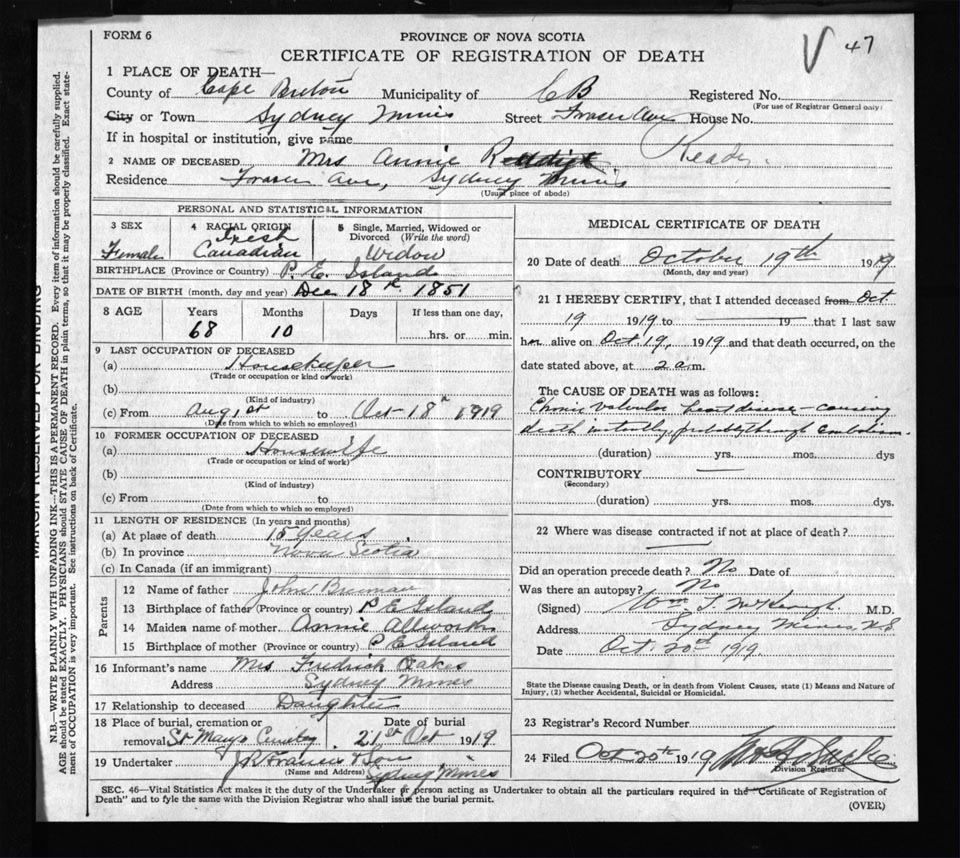 FORM 6
PROVINCE OF NOVA SCOTIA
CERTIFICATE OF REGISTRATION OF DEATH
V 47
1 PLACE OF DEATH—
County of Cape Breton Municipality of C B Registered No.
(For use of Registrar General only)
City or Town Sydney Mines Street Fraser Ave House No.
If in hospital or institution, give name
2 NAME OF DECEASED Mrs Annie Reddick Ready.
Residence Fraser Ave, Sydney Mines
(Usual place of abode)
PERSONAL AND STATISTICAL INFORMATION
3 SEX Female
4 RACIAL ORIGIN Irish Canadian
5 Single, Married, Widowed or Divorced (Write the word) Widow
BIRTHPLACE (Province or Country) P. E. Island
DATE OF BIRTH (month, day and year) Dec 18th 1851
8 AGE Years 68 Months 10 Days If less than one day, hrs. or min.
9 LAST OCCUPATION OF DECEASED
(a) Housekeeper
(Trade or occupation or kind of work)
(b)
(Kind of industry)
(c) From Aug 1st to Oct 18th 1919
(Date from which to which so employed)
10 FORMER OCCUPATION OF DECEASED
(a) Housewife
(Trade or occupation or kind of work)
(b)
(Kind of industry)
(c) From to
(Date from which to which so employed)
11 LENGTH OF RESIDENCE (In years and months)
(a) At place of death 15 years
(b) In province Nova Scotia
(c) In Canada (if an immigrant)
Parents
12 Name of father John
13 Birthplace of father (Province or country) P E Island
14 Maiden name of mother Annie Allworth
15 Birthplace of mother (Province or country) P E Island
16 Informant's name Mrs Fredrick Oakes
Address Sydney Mines
17 Relationship to deceased Daughter
18 Place of burial, cremation or removal St Marys Cemetery Date of burial 21st Oct 1919
19 Undertaker J R Francis & Son
(Name and Address) Sydney Mines
MEDICAL CERTIFICATE OF DEATH
20 Date of death October 19th 1919
(Month, day and year)
21 I HEREBY CERTIFY, that I attended deceased from Oct
19 1919 to 19 that I last saw
her alive on Oct 19, 1919 and that death occurred, on the
date stated above, at 2 a.m.
The CAUSE OF DEATH was as follows:
Chronic valvular heart disease – causing
death instantly, probably through embolism.
(duration) yrs. mos. dys
CONTRIBUTORY
(Secondary)
(duration) yrs. mos. dys.
22 Where was disease contracted if not at place of death?
Did an operation precede death? No Date of
Was there an autopsy? No
(Signed) Wm T. McKeough. M.D.
Address Sydney Mines, N.S
Date Oct. 20th 1919.
State the Disease causing Death, or in death from Violent Causes, state (1) Means and Nature of
Injury, (2) whether Accidental, Suicidal or Homicidal.
23 Registrar's Record Number
24 Filed Oct 20th 1919
Division Registrar
SEC. 46—Vital Statistics Act makes it the duty of the Undertaker or person acting as Undertaker to obtain all the particulars required in the "Certificate of Registration of
Death" and to file the same with the Division Registrar who shall issue the burial permit.
(OVER)
MARGIN RESERVED FOR BINDING
N.B.—WRITE PLAINLY WITH UNFADING INK—THIS IS A PERMANENT RECORD. Every item of information should be carefully supplied.
AGE should be stated EXACTLY. PHYSICIANS should STATE CAUSE OF DEATH in plain terms, so that it may be properly classified. Exact statement of OCCUPATION is very important. See instructions on back of Certificate.